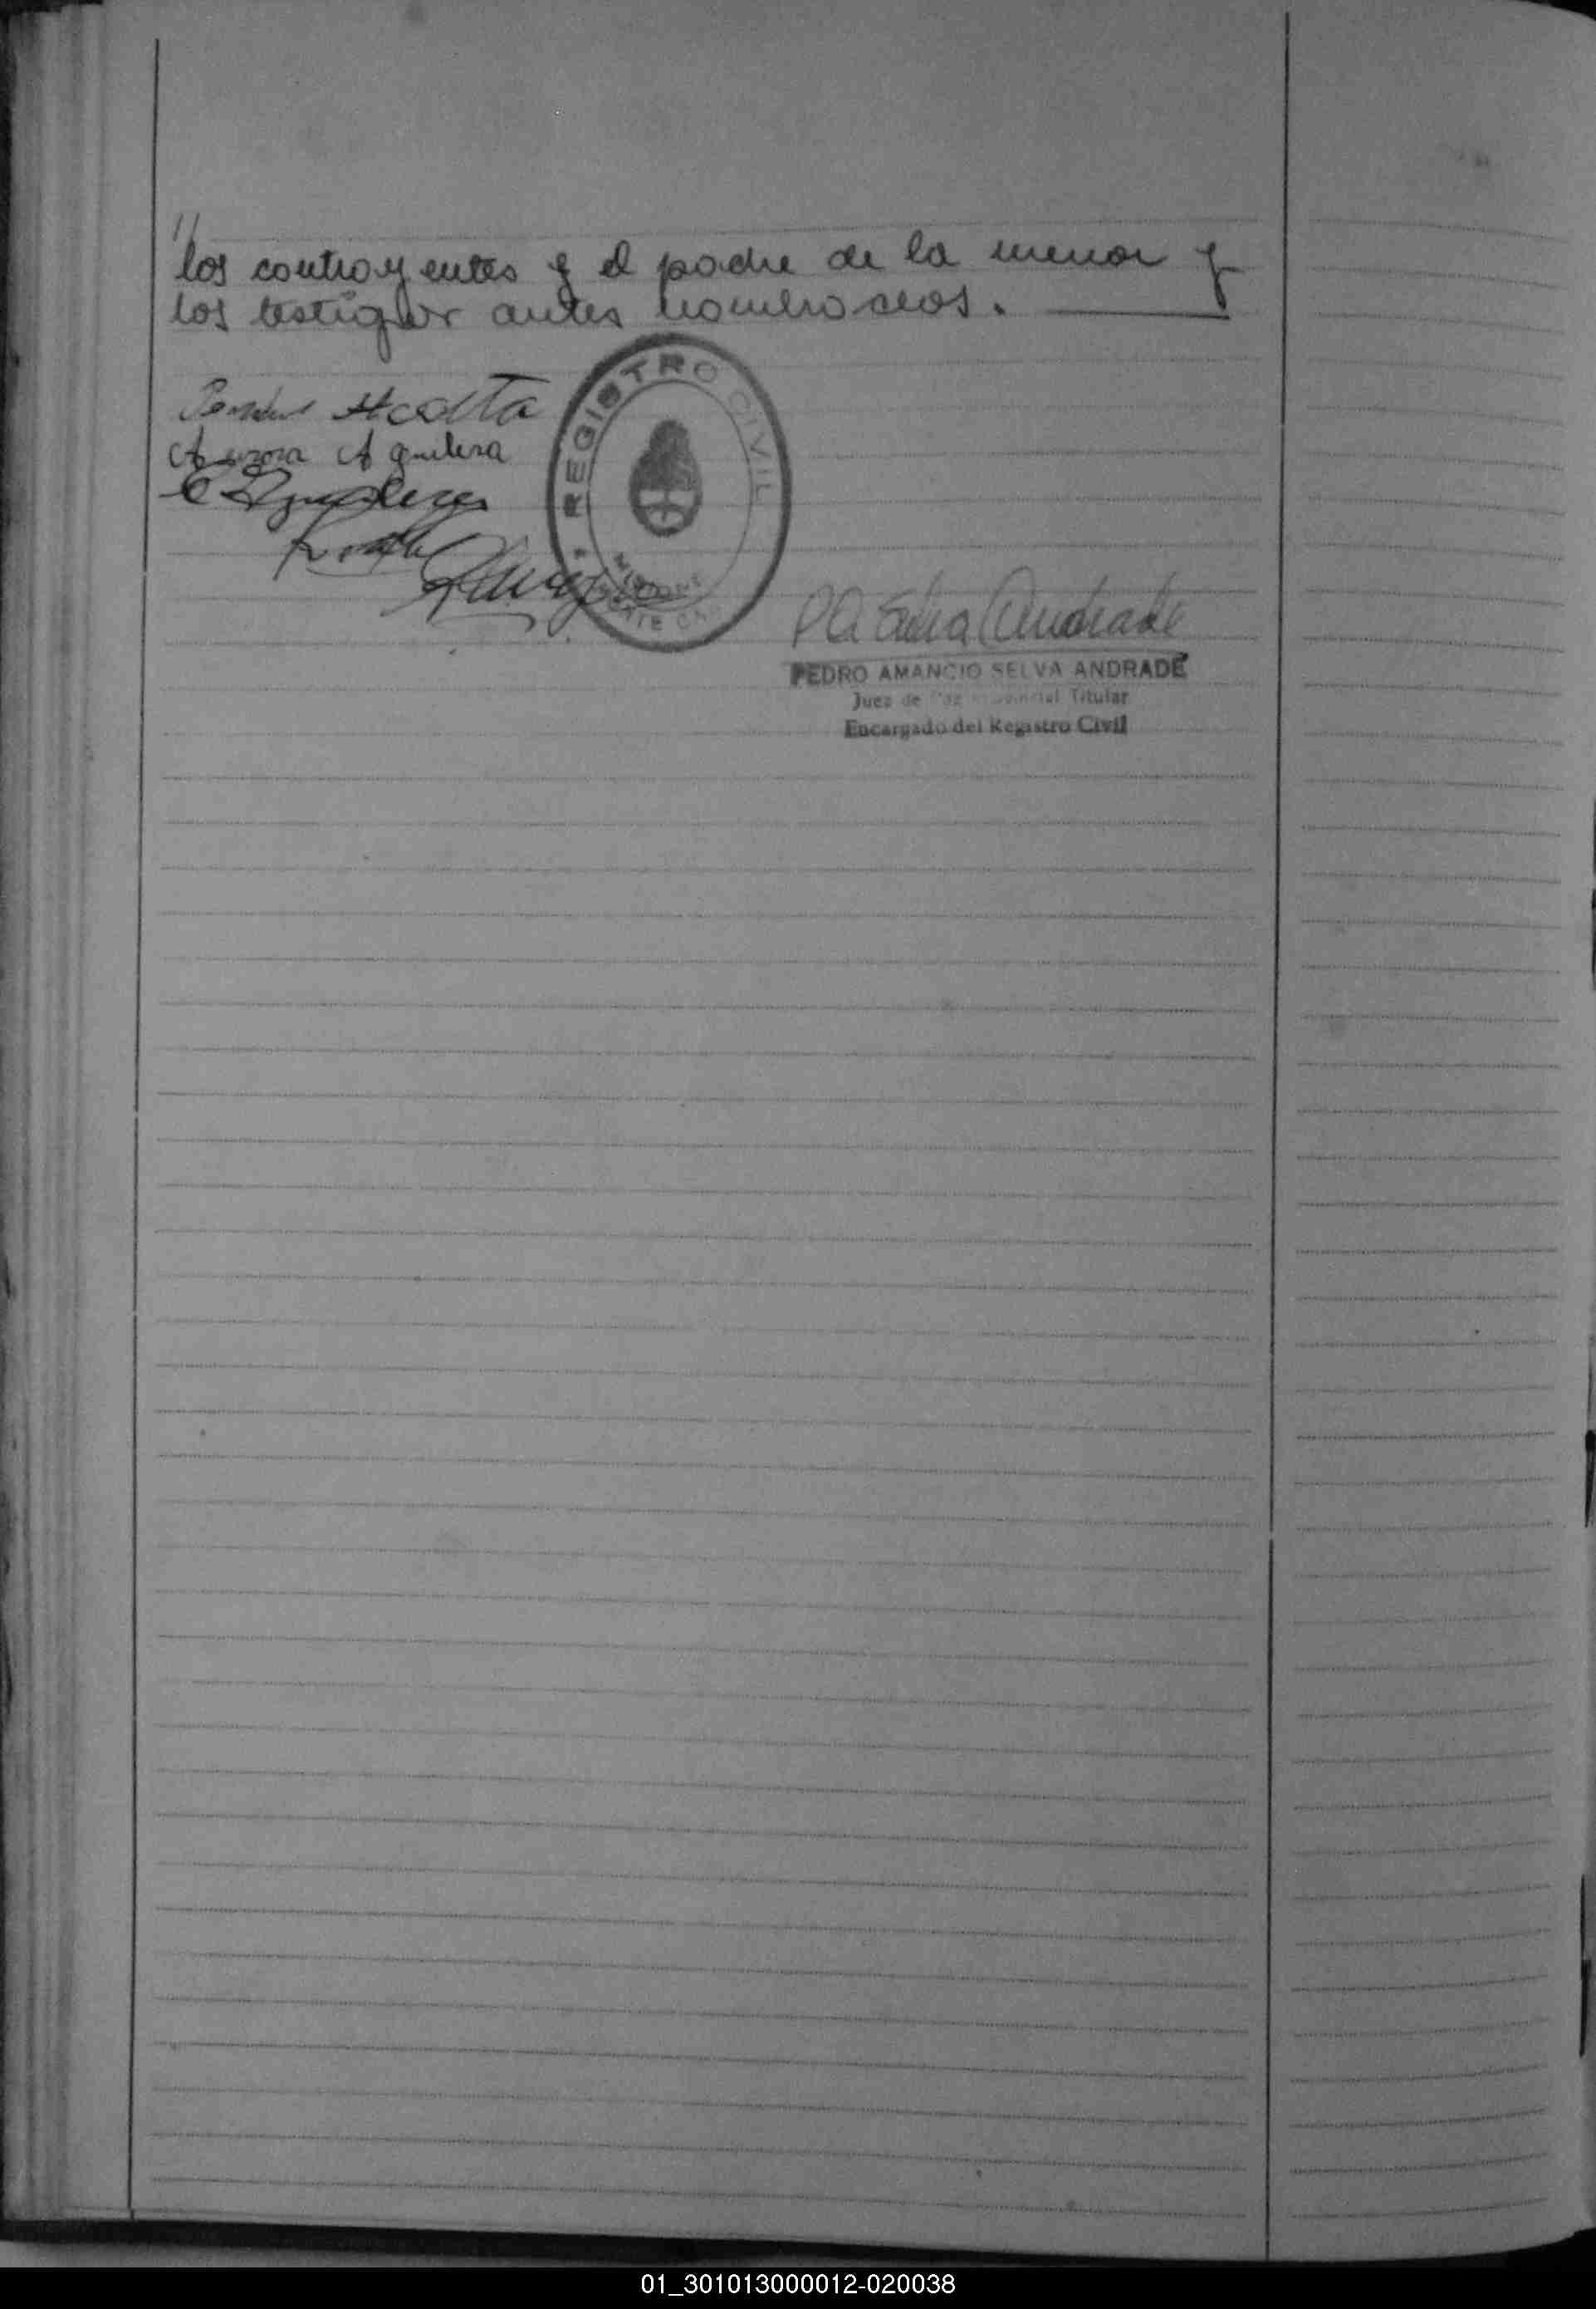 //
los contrayentes y el padre de la menor y
los testigos antes nombrados.
Acosta
Aurora Aguilera
Aguilera
REGISTRO CIVIL
PA Selva Andrade
PEDRO AMANCIO SELVA ANDRADE
Juez de Paz Titular
Encargado del Registro Civil
01_301013000012-020038